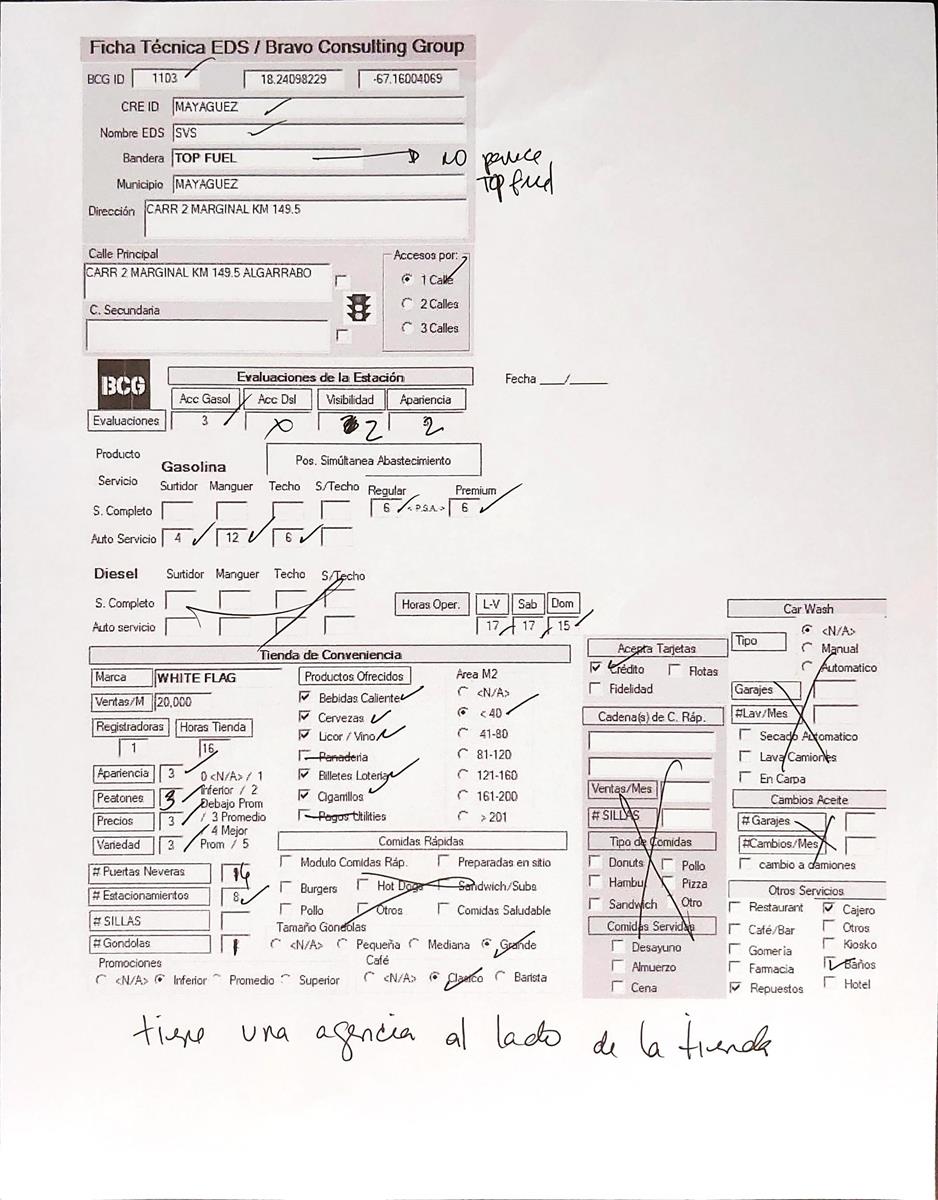 Ficha Técnica EDS / Bravo Consulting Group
BCG ID 1103 18.24098229 -67.16004069
CRE ID MAYAGUEZ
Nombre EDS SVS
Bandera TOP FUEL NO parece
Top fuel
Municipio MAYAGUEZ
Dirección CARR 2 MARGINAL KM 149.5
Calle Principal
CARR 2 MARGINAL KM 149.5 ALGARRABO
C. Secundaria
Accesos por:
1 Calle
2 Calles
3 Calles
BCG
Evaluaciones de la Estación
Fecha ___/______
Acc Gasol Acc Dsl Visibilidad Apariencia
Evaluaciones 3 2 2
Producto
Servicio
Gasolina
Pos. Simúltanea Abastecimiento
Surtidor Manguer Techo S/Techo Regular Premium
S. Completo 6 < P.S.A. > 6
Auto Servicio 4 12 6
Diesel Surtidor Manguer Techo S/Techo
S. Completo
Auto servicio
Horas Oper. L-V Sab Dom
17 17 15
Tienda de Conveniencia
Marca WHITE FLAG
Ventas/M 20,000
Registradoras Horas Tienda
1 16
Apariencia 3
Peatones 3
Precios 3
Variedad 3
0 <N/A> / 1
Inferior / 2
Debajo Prom
/ 3 Promedio
/ 4 Mejor
Prom / 5
# Puertas Neveras
# Estacionamientos 8
# SILLAS
# Gondolas
Promociones
<N/A> Inferior Promedio Superior
Productos Ofrecidos
Bebidas Caliente
Cervezas
Licor / Vino
Panaderia
Billetes Loteria
Cigarrillos
Pagos Utilities
Area M2
<N/A>
< 40
41-80
81-120
121-160
161-200
> 201
Comidas Rápidas
Modulo Comidas Ráp. Preparadas en sitio
Burgers Hot Dogs Sandwich/Subs
Pollo Otros Comidas Saludable
Tamaño Gondolas
<N/A> Pequeña Mediana Grande
Café
<N/A> Clasico Barista
Acepta Tarjetas
Crédito Flotas
Fidelidad
Cadena(s) de C. Ráp.
Ventas/Mes
# SILLAS
Tipo de Comidas
Donuts Pollo
Hambu Pizza
Sandwich Otro
Comidas Servidas
Desayuno
Almuerzo
Cena
Car Wash
Tipo
<N/A>
Manual
Automatico
Garajes
#Lav/Mes
Secado Automatico
Lava Camiones
En Carpa
Cambios Aceite
# Garajes
#Cambios/Mes
cambio a camiones
Otros Servicios
Restaurant Cajero
Café/Bar Otros
Gomeria Kiosko
Farmacia Baños
Repuestos Hotel
tiene una agencia al lado de la tienda